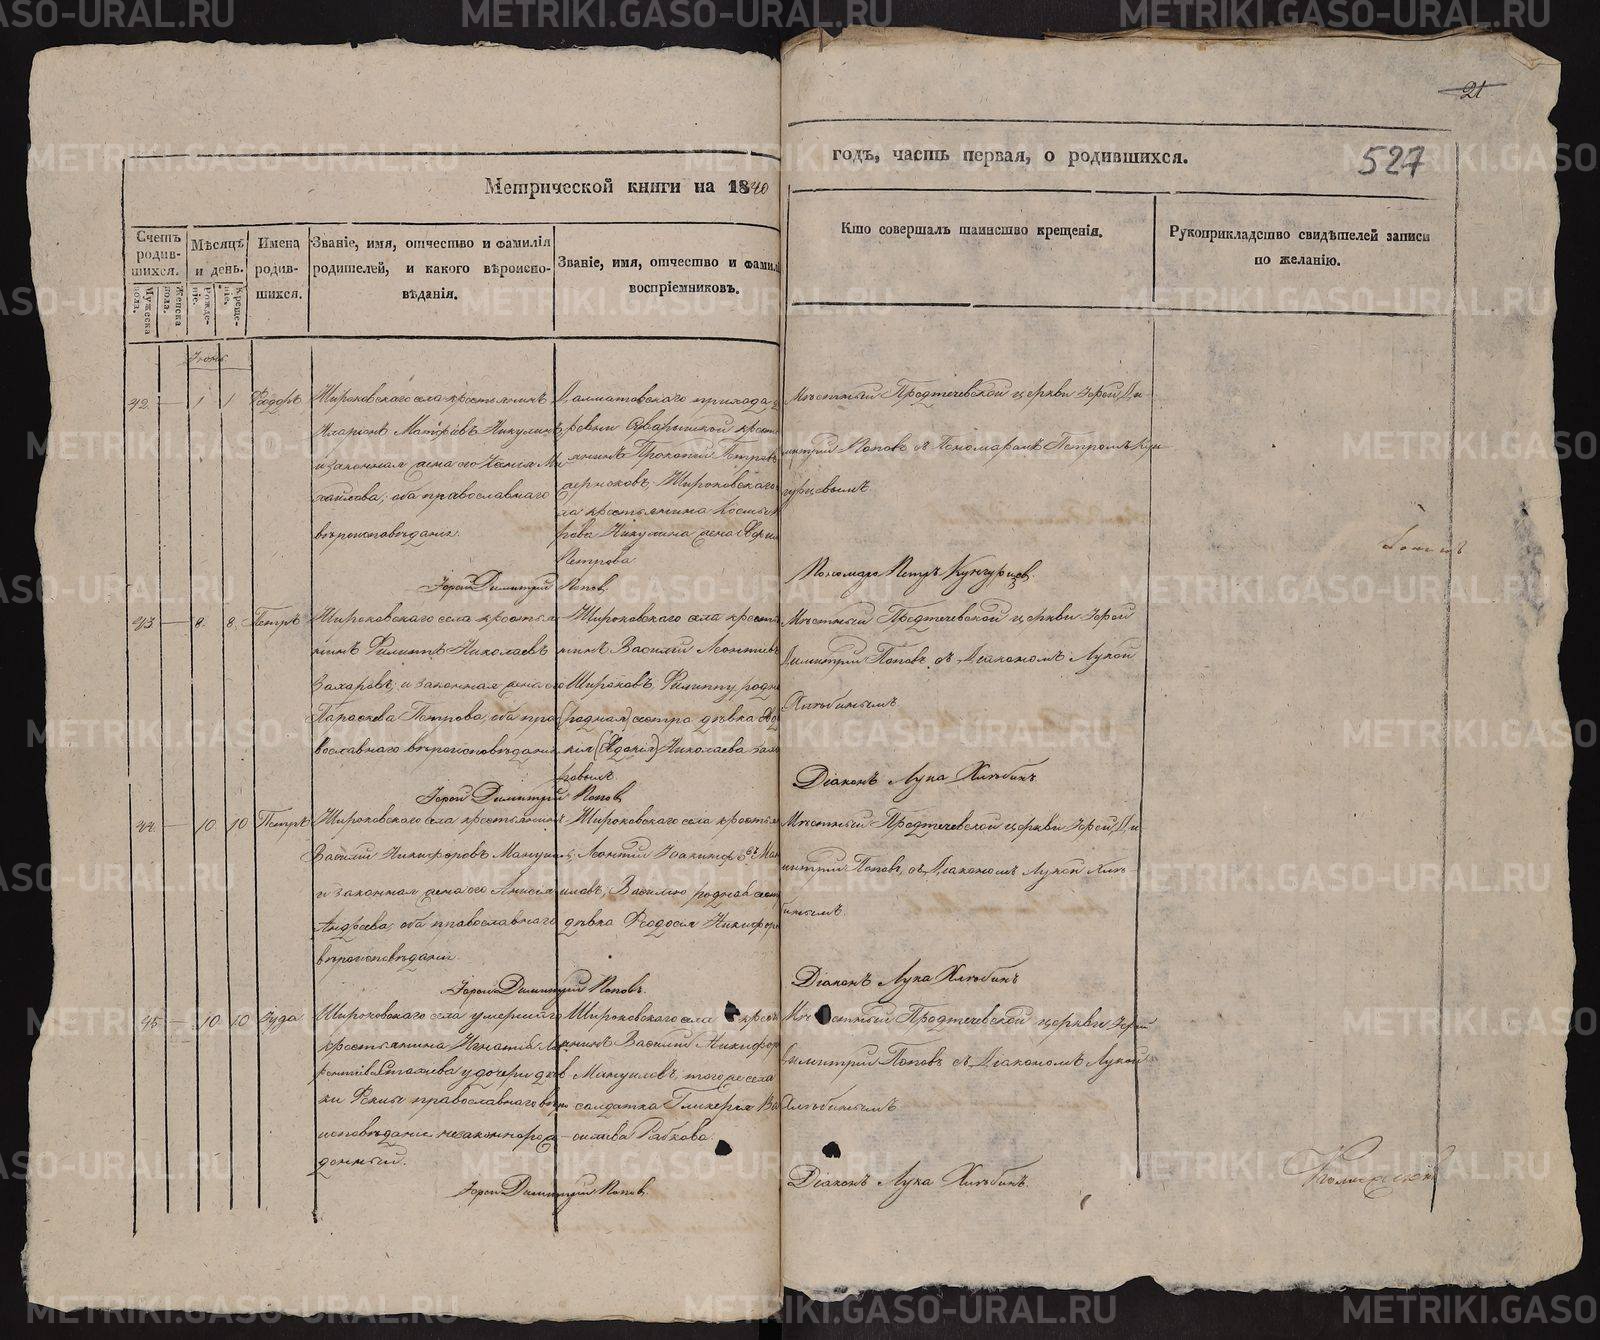 21
527
Метрической книги на 1840
годъ, часть первая, о родившихся.
Счетъ родив-шихся.
Мужеска пола.
Женска пола.
Мѣсяцъ и день.
Рожде-ніе.
Креще-ніе.
Имена родив-шихся.
Званіе, имя, отчество и фамилія
родителей, и какого вѣроиспо-
вѣданія.
Званіе, имя, отчество и фамил
воспріемниковъ.
Кто совершалъ таинство крещенія.
Рукоприкладство свидѣтелей записи
по желанію.
Іюнь.
42 — 1 1 Ѳеодоръ
Широковскаго села крестьянинъ
Иларіонъ Матѳіевъ Никулинъ
и законная жена его Ксенія Ми
хаилова; оба православнаго
вѣроисповѣданія.
Далматовскаго прихода де
ревни крест
янинъ Прокопій Петровъ
Широковскаго
ла крестьянина
рова Никулина жена
Петрова
Мѣстный Предтечевской церкви Іерей Ди-
митрій Поповъ съ Пономаремъ Петромъ Кун
гурцевымъ.
Іерей Димитрій Поповъ
Пономарь Петръ Кунгурцовъ.
43 — 8. 8. Петръ
Широковскаго села крестья
нинъ Филиппъ Николаевъ
Захаровъ; и законная жена его
Параскева Петрова, оба пра
вославнаго вѣроисповѣданія
Широковскаго села кресть
нинъ Василій Леонтіевъ
Широковъ, Филиппу родна
(родная) сестра дѣвка Ев
кія (Вдокія) Николаева Заха
ровыхъ.
Мѣстный Предтечевской церкви Іерей
Димитрій Поповъ съ Діакономъ Лукой
Хлѣбинымъ
Іерей Димитрій Поповъ
Діаконъ Лука Хлѣбинъ
44 — 10 10 Петръ
Широковскаго села крестьянинъ
Василій Никифоровъ Мануил
и законная жена его Анисія
Андреева, оба православнаго
вѣроисповѣданія.
Широковскаго села крестья
Леонтій Іоакимовъ Ман
иловъ, Василію родная сест
дѣвка Ѳеодосія Никифоро
Мѣстный Предтечевской церкви Іерей Ди-
митрій Поповъ, съ Діакономъ Лукой Хлѣ-
бинымъ.
Іерей Димитрій Поповъ.
Діаконъ Лука Хлѣбинъ
45 — 10 10 Іуда
Широковскаго села умершаго
крестьянина Игнатія Ла
рентіева у дочери дѣв
ки Ѳеклы православнаго вѣро
исповѣданія незаконнорож
денный.
Широковскаго села крест
янинъ Василій Никифор
Мануиловъ, того же села
солдатка Гликерья Ва
сильева Рябкова.
Мѣстный Предтечевской церкви Іерей
Димитрій Поповъ съ Діакономъ Лукой
Хлѣбинымъ
Іерей Димитрій Поповъ
Діаконъ Лука Хлѣбинъ.
METRIKI.GASO-URAL.RU